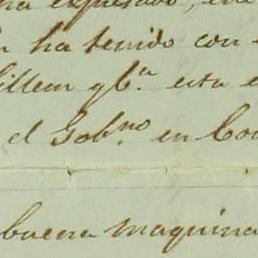 ha expresado, en
ha tenido con
illem y C.ª esta e
el Gob.no en Co
buena maquina